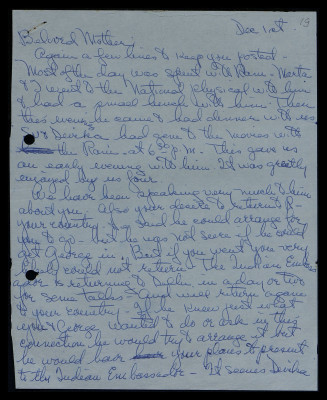 Dec 1st
Beloved Mother,
Again a few lines to keep you posted -
Most of the day was spent with Ram - Marta
& I went to the National physical with him
& had a small lunch with him. Then
this eve. he came & had dinner with us.
Devika had gone to the movies with
the Ranis at 6:30 P.M. This gave us
an early evening with him. It was greatly
enjoyed by us four.
We have been speaking very much to him
about you. Also your desire to return to
your country. He said he could arrange for
you to go - but he was not sure if he could
get George in. But if you went you very
likely could not return. The Indian Embass-
ador is returning to Delhi in a day or two
for some talks & will return again
to your country. If he knew just what
you & George wanted to do or ask in this
connection he would try & arrange it but
he would have your plans to present
to the Indian Embassador - It seems Devika